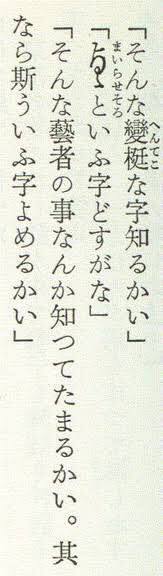 へんてこ
「そんな變梃な字知るかい」
まいらせそろ
「といふ字どすがな」
「そんな藝者の事なんか知つてたまるかい。其
なら斯ういふ字よめるかい」